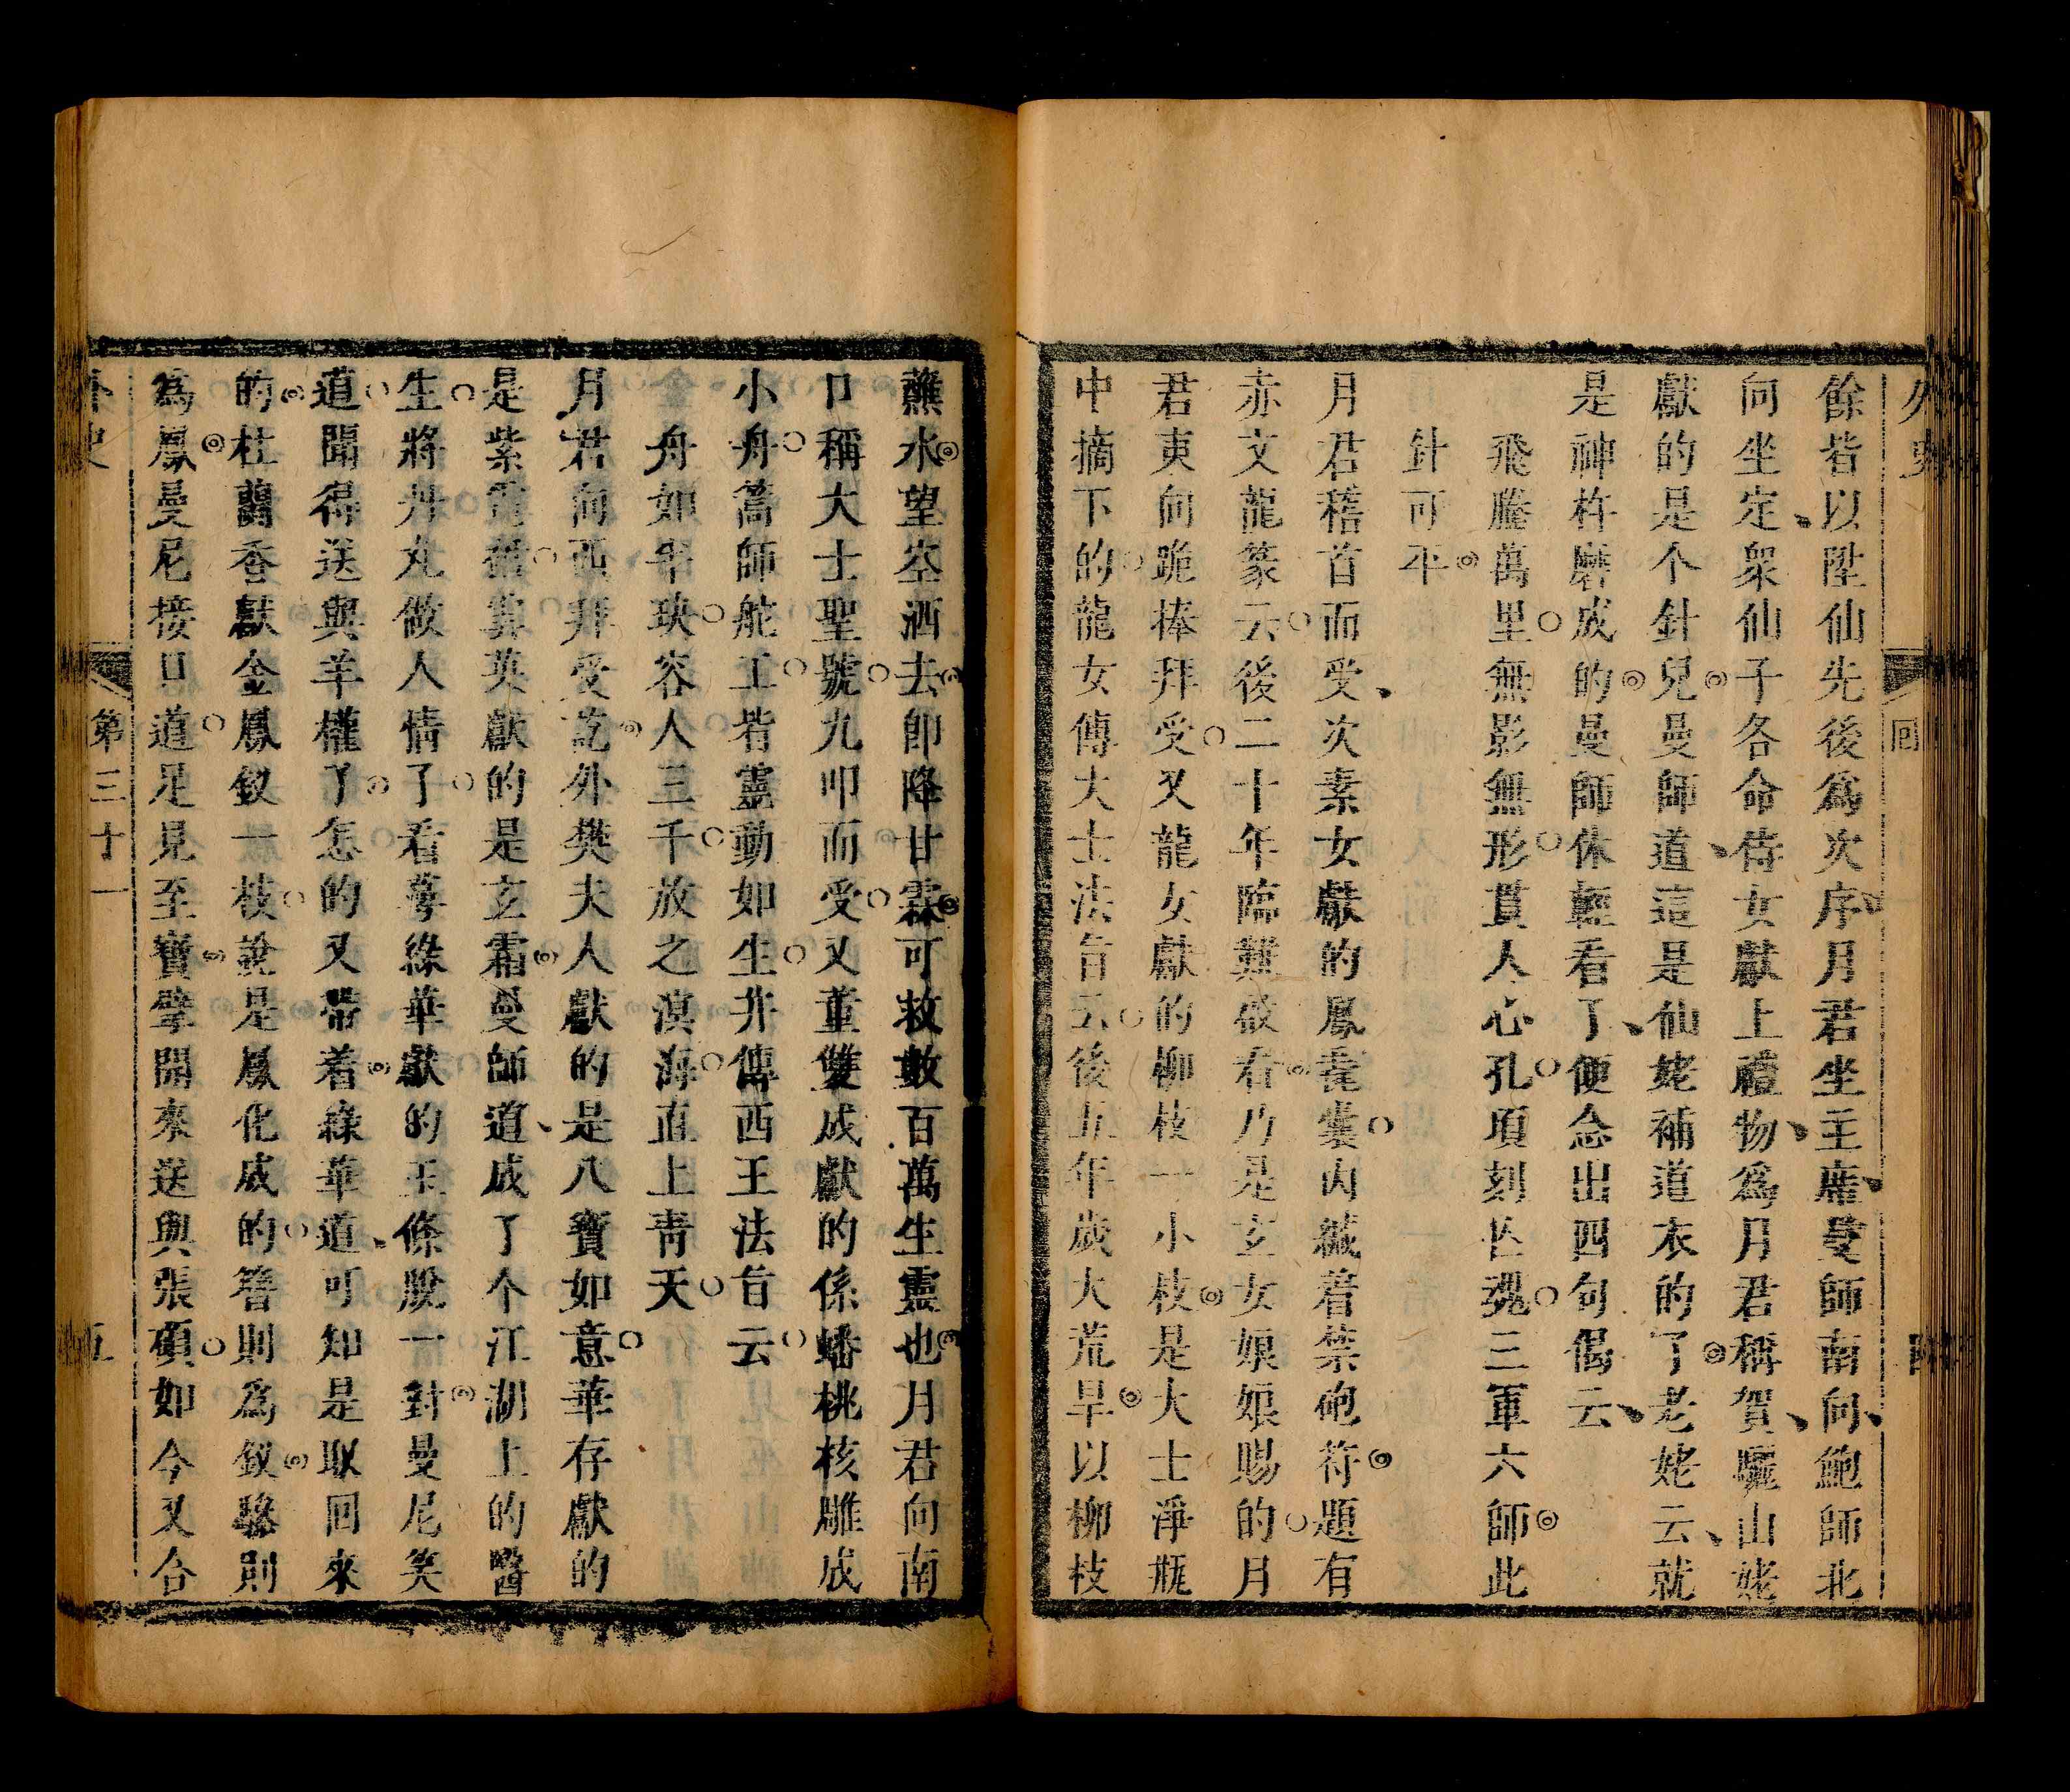 外史
回
餘皆以陞仙先後爲次序月君坐主席曼師南向鮑師北
向坐定衆仙子各命侍女獻上禮物爲月君稱賀驪山姥
獻的是个針兒曼師道這是仙姥補道衣的了老姥云就
是神杵磨成的曼師休輕看了便念出四句偈云
飛騰萬里無影無形貫人心孔頃刻亡魂三軍六師此
針可平
月君稽首而受次素女獻的鳳毳囊內緘着禁砲符題有
赤文龍篆云後二十年臨難啟看乃是玄女娘娘賜的月
君東向跪捧拜受又龍女獻的柳枝一小枝是大士淨瓶
中摘下的龍女傳大士法旨云後五年歲大荒旱以柳枝
蘸水望空洒去卽降甘霖可救數百萬生靈也月君向南
口稱大士聖號九叩而受又董雙成獻的係蟠桃核雕成
小舟篙師舵工皆靈動如生并傳西王法旨云
舟如半玦容人三千放之溟海直上靑天
月君向西拜受訖外樊夫人獻的是八寶如意華存獻的
是紫電裙雲英獻的是玄霜曼師道成了个江湖上的醫
生將丹丸做人情了看萼綠華獻的玉條脫一對曼尼笑
道聞得送與羊權了怎的又帶着綠華道可知是取回來
的杜蘭香獻金鳳釵一枝說是鳳化成的簪則爲釵臵則
爲鳳曼尼接口道足見至寶擘開來送與張碩如今又合
外史
第三十一
五